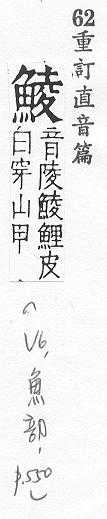 62重訂直音篇
鯪
音陵鯪鯉皮
曰穿山甲
(V6,魚部,
p.550)